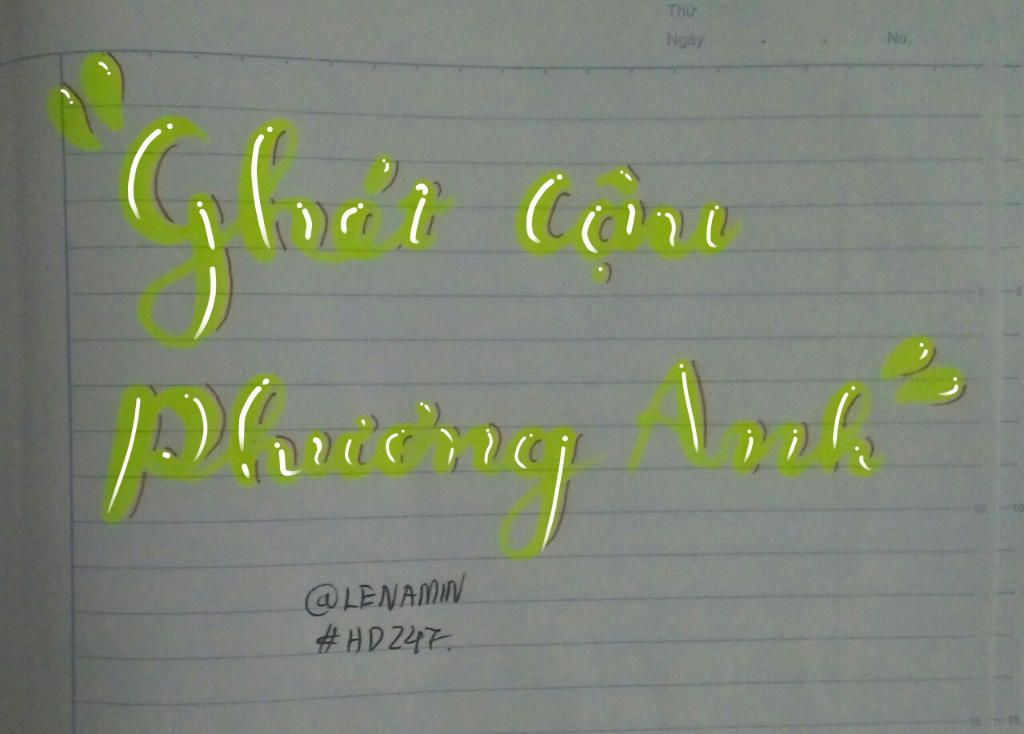 Thứ
Ngày . . No.
"Ghét cậu
Phương Anh"
5 5
10 10
@LENAMIN
#HD247.
15 15